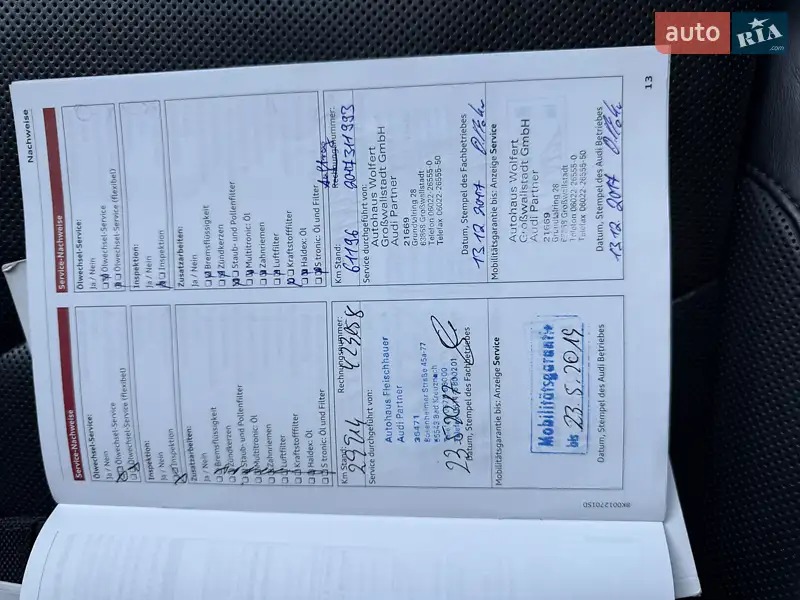 auto RIA .com
Nachweise
Service-Nachweise
Ölwechsel-Service:
Ja / Nein
Ölwechsel-Service
Ölwechsel-Service (flexibel)
Inspektion:
Ja / Nein
Inspektion
Zusatzarbeiten:
Ja / Nein
Bremsflüssigkeit
Zündkerzen
Staub- und Pollenfilter
Multitronic: Öl
Zahnriemen
Luftfilter
Kraftstofffilter
Haldex: Öl
S tronic: Öl und Filter
Km Stand:
Rechnungsnummer:
29214
423058
Service durchgeführt von:
Autohaus Fleischhauer
Audi Partner
36471
Bosenheimer Straße
55543 Bad Kreuznach
23.5.2017
Datum, Stempel des Fachbetriebes
Mobilitätsgarantie bis: Anzeige Service
Mobilitätsgarantie
bis 23.5.2019
Datum, Stempel des Audi Betriebes
8K0012701SD
Service-Nachweise
Ölwechsel-Service:
Ja / Nein
Ölwechsel-Service
Ölwechsel-Service (flexibel)
Inspektion:
Ja / Nein
Inspektion
Zusatzarbeiten:
Ja / Nein
Bremsflüssigkeit
Zündkerzen
Staub- und Pollenfilter
Multitronic: Öl
Zahnriemen
Luftfilter
Kraftstofffilter
Haldex: Öl
S tronic: Öl und Filter
Km Stand:
Rechnungsnummer:
61196
2017311993
Service durchgeführt von:
Autohaus Wolfert
Großwallstadt GmbH
Audi Partner
21669
Grundtalring 28
63868 Großwallstadt
Telefon 06022-26555-0
Telefax 06022-26555-50
13.12.2017
Datum, Stempel des Fachbetriebes
Mobilitätsgarantie bis: Anzeige Service
Autohaus Wolfert
Großwallstadt GmbH
Audi Partner
21669
Grundtalring 28
63868 Großwallstadt
Telefon 06022-26555-0
Telefax 06022-26555-50
13.12.2017
Datum, Stempel des Audi Betriebes
13